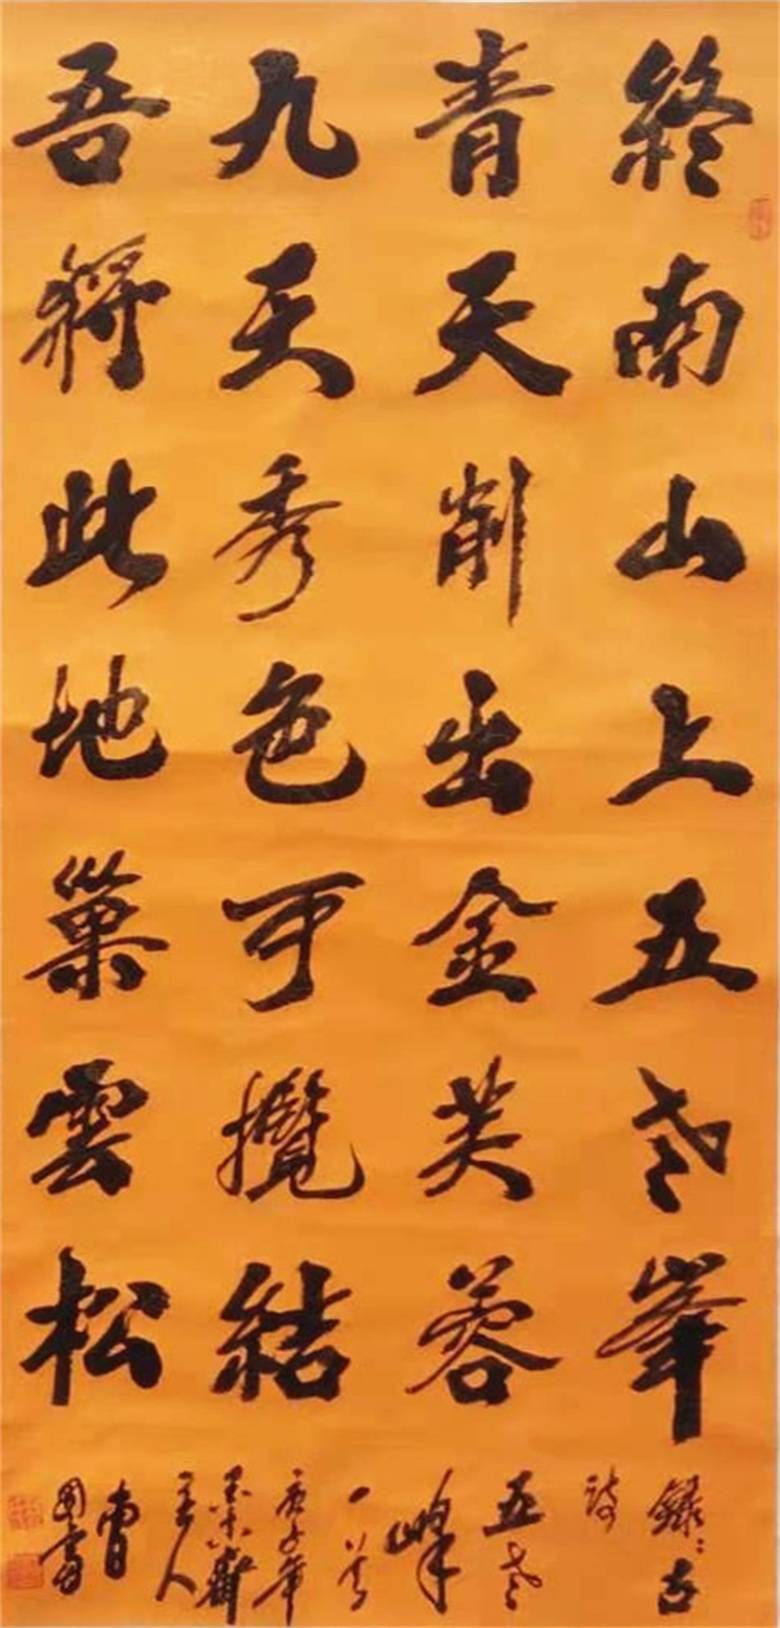 終南山上五老峯
青天削出金芙蓉
九天秀色可攬結
吾將此地巢雲松
錄古
詩
五老
峰
一首
庚子年
齋
主人
曹